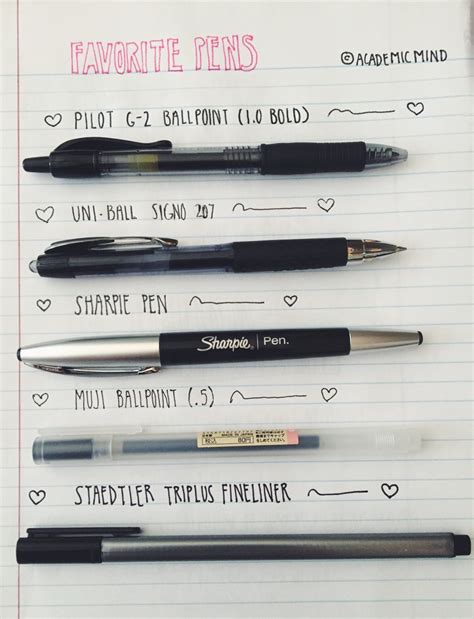 FAVORITE PENS
© ACADEMIC MIND
PILOT G-2 BALLPOINT (1.0 BOLD)
UNI-BALL SIGNO 207
SHARPIE PEN
Sharpie. | Pen.
MUJI BALLPOINT (.5)
税込 80円
STAEDTLER TRIPLUS FINELINER